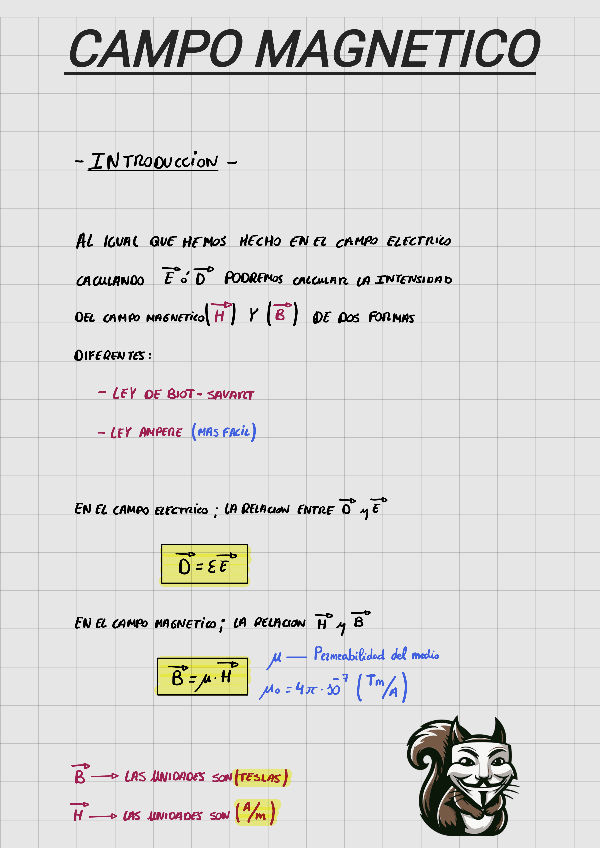 CAMPO MAGNETICO
- INTRODUCCION -
AL IGUAL QUE HEMOS HECHO EN EL CAMPO ELECTRICO
CACULANDO E⃗ ó D⃗ PODREMOS CALCULAR LA INTENSIDAD
DEL CAMPO MAGNETICO (H⃗) Y (B⃗) DE DOS FORMAS
DIFERENTES:
- LEY DE BIOT-SAVART
- LEY AMPERE (MAS FACIL)
EN EL CAMPO ELECTRICO; LA RELACION ENTRE D⃗ y E⃗
D⃗ = εE⃗
EN EL CAMPO MAGNETICO; LA RELACION H⃗ y B⃗
B⃗ = μ·H⃗
μ — Permeabilidad del medio
μ₀ = 4π·10⁻⁷ (Tm/A)
B⃗ → LAS UNIDADES SON (TESLAS)
H⃗ → LAS UNIDADES SON (A/m)